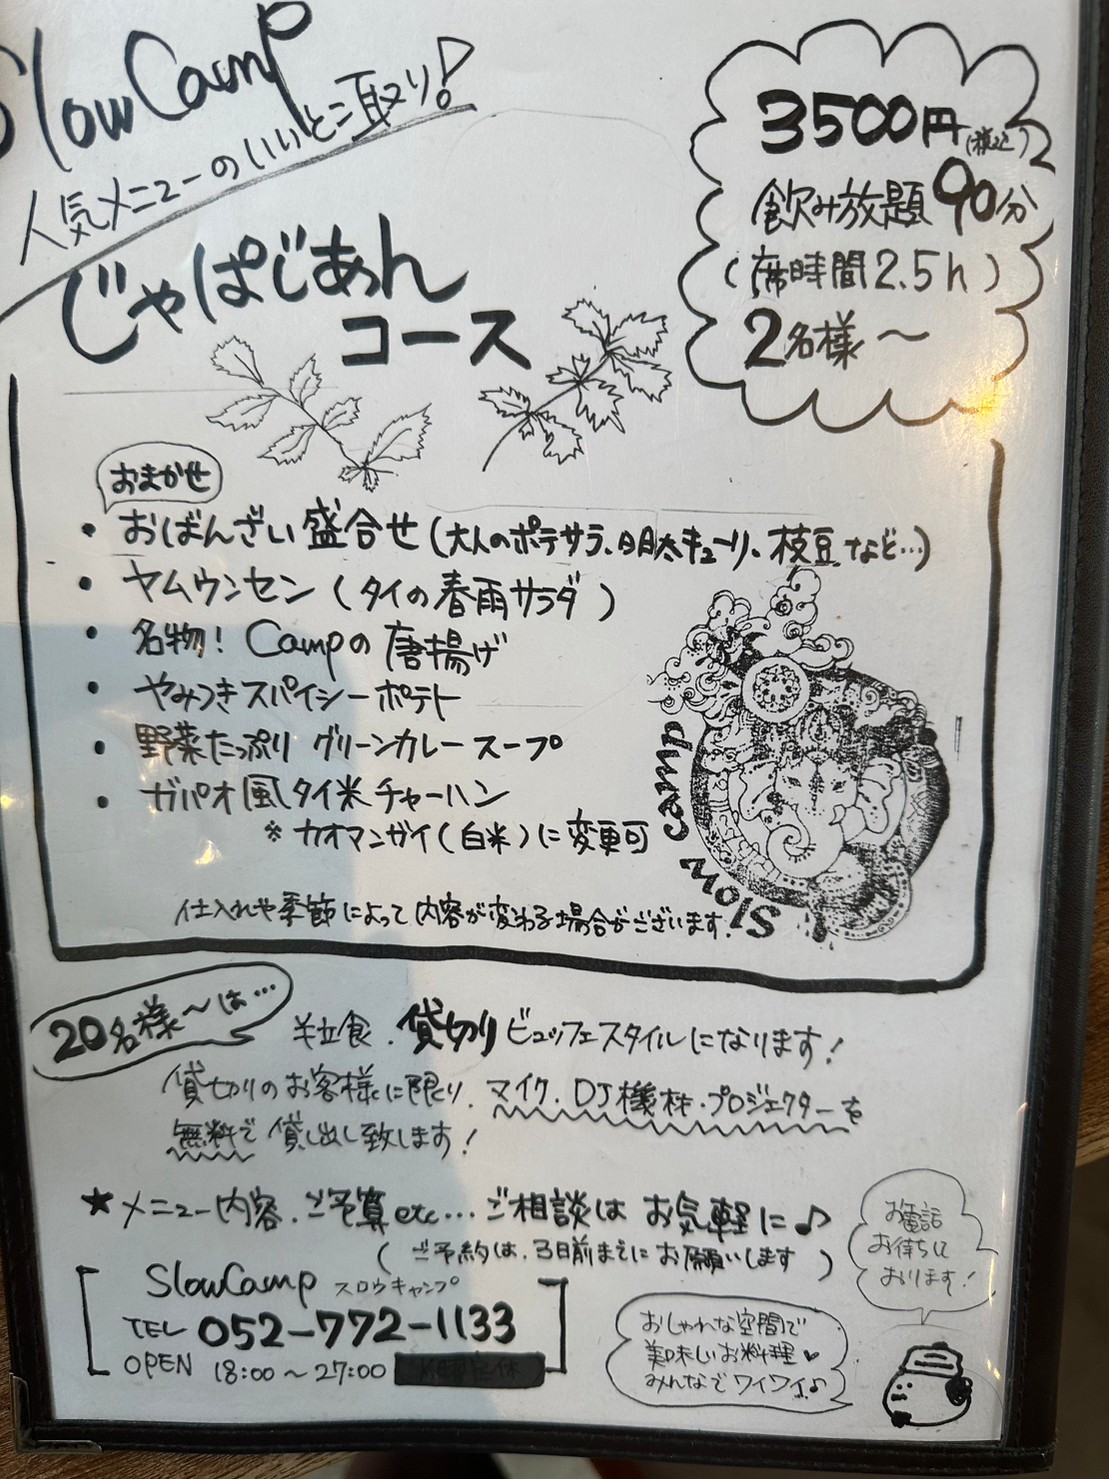 SlowCamp
人気メニューのいいとこ取り!
じゃぱじあん
コース
3500円(税込)
飲み放題90分
(席時間2.5h)
2名様～
おまかせ
・おばんざい盛合せ(大人のポテサラ、明太キューリ、枝豆など…)
・ヤムウンセン(タイの春雨サラダ)
・名物! Campの唐揚げ
・やみつきスパイシーポテト
・野菜たっぷり グリーンカレースープ
・ガパオ風タイ米チャーハン
※カオマンガイ(白米)に変更可
Slow camp
仕入れや季節によって内容が変わる場合がございます.
20名様～は…
立食.貸切りビュッフェスタイルになります!
貸切りのお客様に限り.マイク.DJ機材・プロジェクターを
無料で貸し出し致します!
★メニュー内容.ご予算etc…ご相談はお気軽に♪
(ご予約は.3日前までにお願いします)
お電話
お待ちして
おります!
SlowCamp スロウキャンプ
TEL 052-772-1133
OPEN 18:00～27:00
おしゃれな空間で
美味しいお料理♥
みんなでワイワイ♪